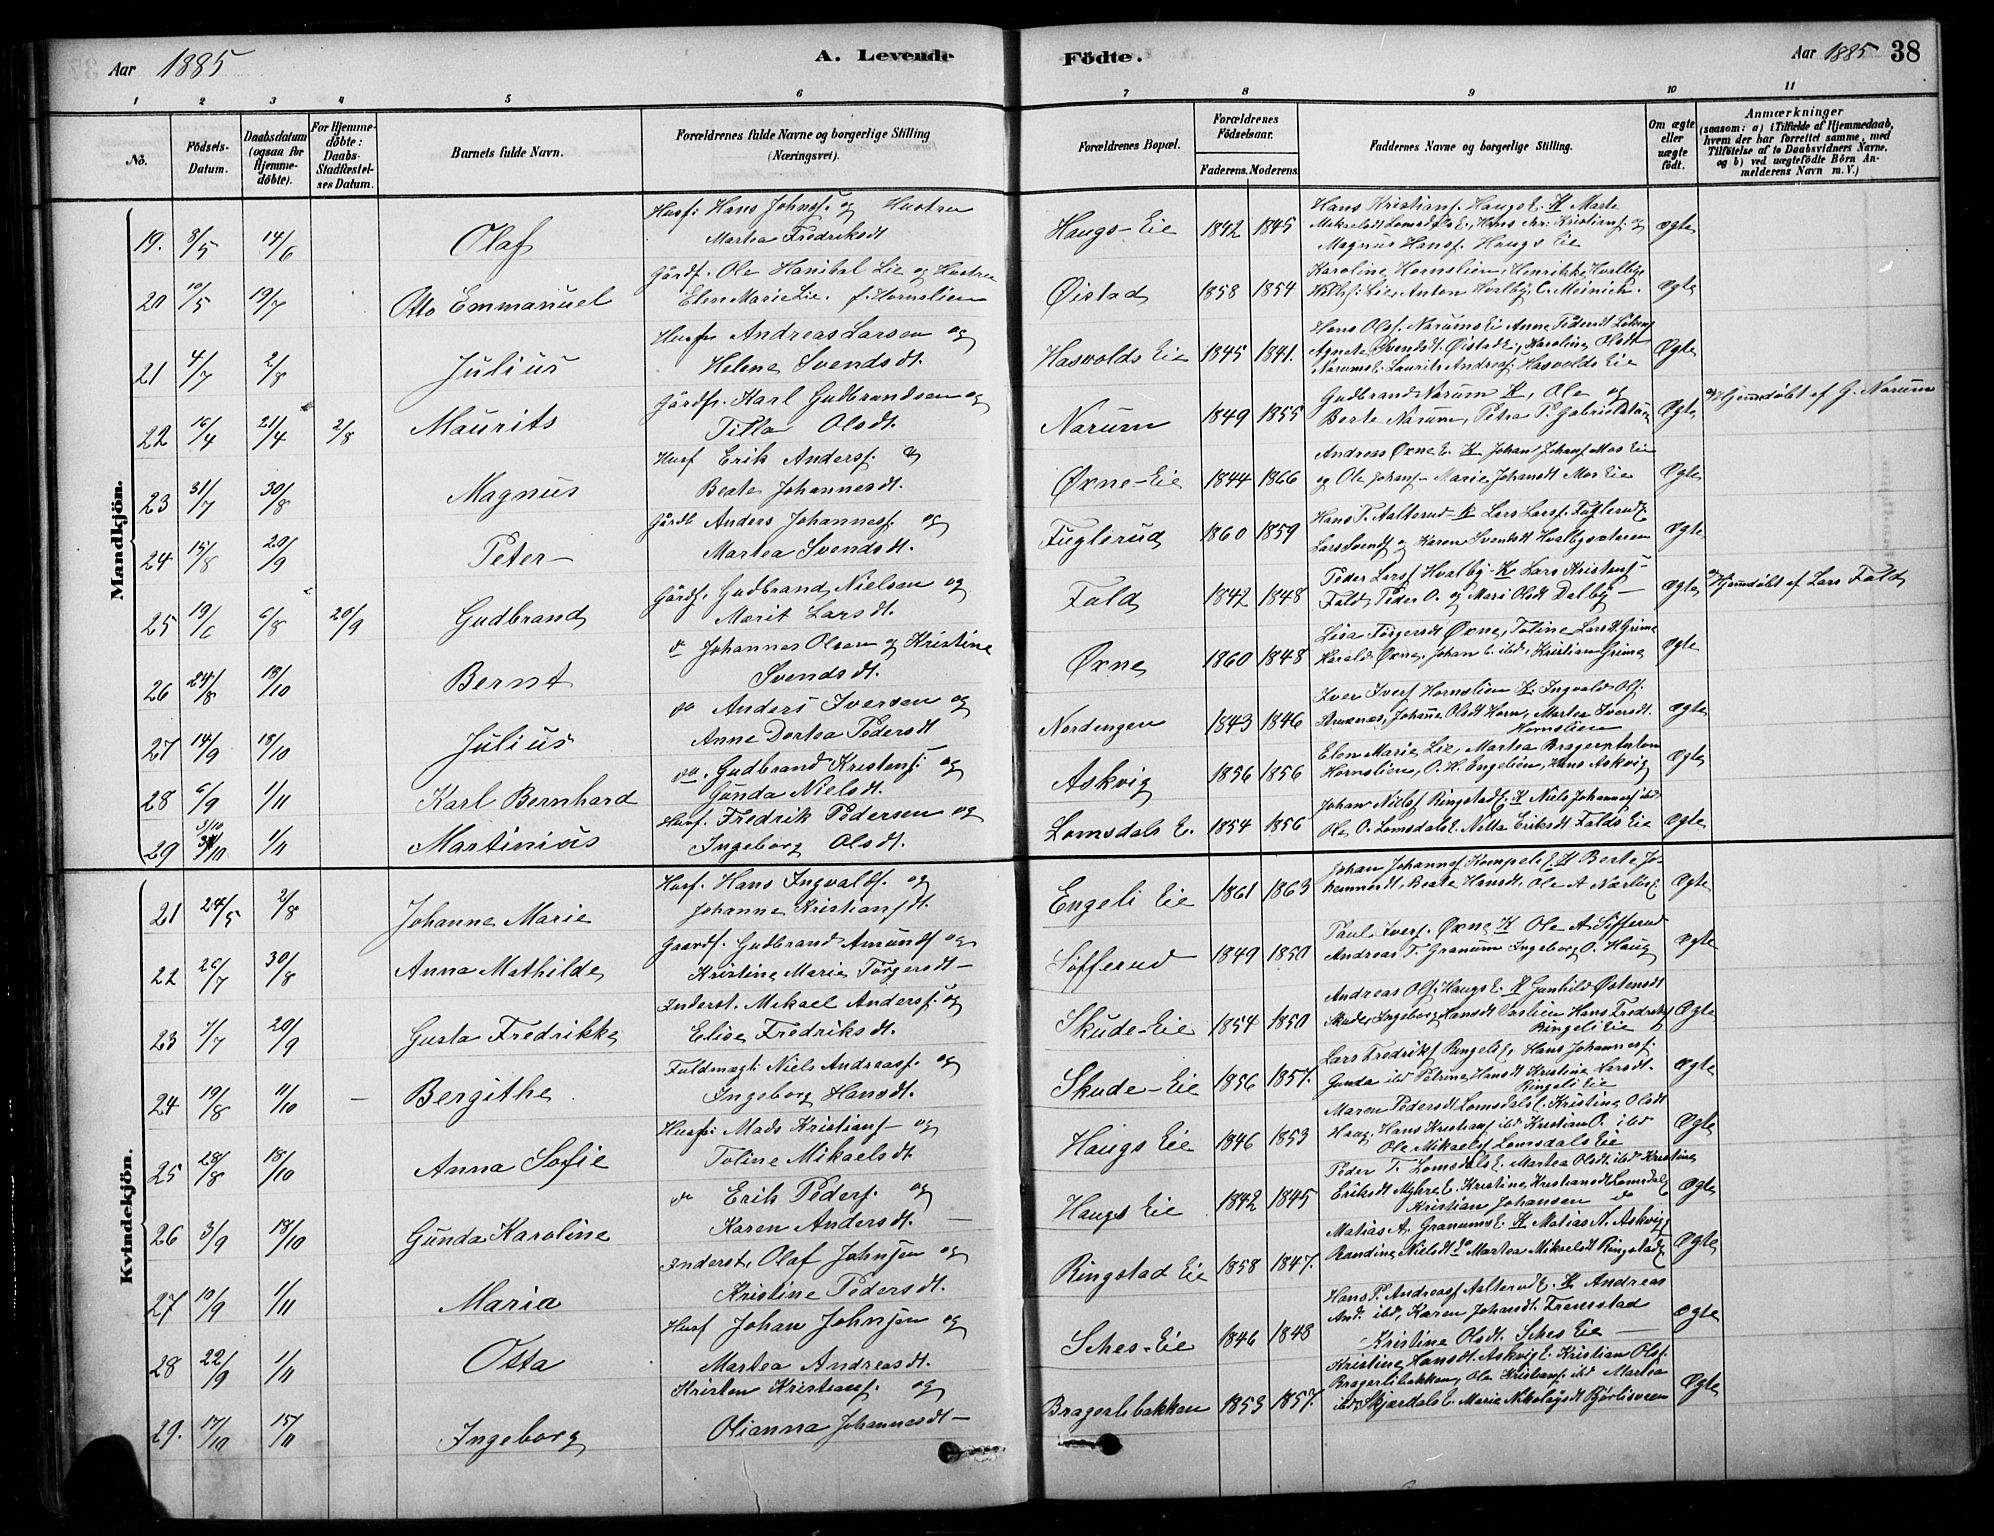 Aar 1885
A. Levende
Födte.
Aar 1885 38
1 2 3 4 5 6 7 8 9 10 11
No.
Födsels-Datum.
Daabsdatum (ogsaa for Hjemme-döbte).
For Hjemme-döbte: Daabs-Stadfæstel-ses Datum.
Barnets fulde Navn.
Forældrenes fulde Navne og borgerlige Stilling (Næringsvei).
Forældrenes Bopæl.
Forældrenes Födselsaar.
Faderens. Moderens.
Faddernes Navne og borgerlige Stilling.
Om ægte eller uægte födt.
Anmærkninger (saasom: a) i Tilfælde af Hjemmedaab, hvem der har forrettet samme, med Tilföielse af to Daabsvidners Navne. og b) ved uægtefödte Börn Anmelderens Navn m. V.)
Mandkjön.
19. 8/5 14/6 Olaf Husf: Hans Johnsf. og Hustru Martea Fredriksdt Haugs-Eie 1842 1845 Hans Kristiansf. Haugs E. K Marte Mikaelsdt Lomsdals E., Hans Kristiansf. og Magnus Hansf. Haugs Eie ægte
20 10/5 19/7 Otto Emmanuel Gårdf. Ole Hanibal Lie og Hustru Elen Marie Lie. f. Hornslien Øistad 1858 1854 Karoline Hornslien, Henrikke Hvalby, Lie, Anton Hvalby, C. Meinich. Ægte
21 4/7 2/8 Julius Husfr Andreas Larsen og Helene Svendsdt. Hasvolds Eie 1845 1841. Hans Olsf. Narums Ei Anne Pedersdt Agnete Svendsdt. Øistad E, Karoline Olsdt Narums E. Laurits Andreasf. Hasvolds Eie Ægte
22 16/4 21/4 2/8 Maurits Gårdfr. Karl Gudbrandsen og Tilla Olsdt. Narum 1849 1855 Gudbrand Narum K, Ole og Berte Narum, Petra P. Ægte Hjemdøbt af G. Narum
23 31/7 30/8 Magnus Husf Erik Andersf. og Beate Johannesdt. Øxne-Eie 1844 1866 Andreas Øxne E. K Johan Johansf Mos Eie og Ole Johansf Marie Johansdt Mos Eie Ægte
24 15/8 20/9 Peter Gårdb Anders Johannesf. og Martea Svendsdt. Fuglerud 1860 1859 Hans P. Aalterud K Lars Larsf. Fuglerud Lars Svendsf og Karen Svendsdt Hvalbyeieren ægte
25 19/6 6/8 20/9 Gudbrand Gårdf. Gudbrand Nielsen og Marit Larsdt. Fald 1842 1848 Peder Larsf Hvalby K Lars Kristensf Fald, Peder O. og Mari Olsdt Dalby ægte Hjemdøbt af Lars Fald
26 24/8 18/10 Bernt do Johannes Olsen og Kristine Svendsdt. Øxne 1860 1848 Lisa Torgersdt Øxne, Toline Larsdt. Grime Harald Øxne, Johan E. ibd, Kristian Grime ægte
27 14/9 18/10 Julius do Anders Iversen og Anne Dortea Pedersdt Nordengen 1843 1846 Iver Iversf Hornslien K. Ingvald Olsf. Johanne Olsdt Horn, Martea Iversdt. Hornslien ægte
28 6/9 1/11 Karl Bernhard do. Gudbrand Kristensf og Gunda Nielsdt. Askvig 1856 1856 Elen Marie Lie, Martea Brager, Anton Hornslien, O. H. Engelien, Hans Askvig ægte
29 3/10 1/11 Martinius Husf. Fredrik Pedersen og Ingeborg Olsdt. Lomsdals E. 1854 1856 Johan Nielsf Ringstad E. K Niels Johannesf ibd Ole O. Lomsdals E. Netta Eriksdt Falds Eie ægte
Kvindekjön.
21 24/5 2/8 Johanne Marie Husf. Hans Ingvaldsf. og Johanne Kristiansdt. Engeli Eie 1861 1863 Johan Johannesf Kompeli E. K Berte Johannesdt, Beate Hansdt, Ole A ægte
22 26/7 30/8 Anna Mathilde Gaardf. Gudbrand Amundsf og Kristine Marie Torgersdt Sofferud 1849 1850 Paul Iversf. Øxne K Ole A. Sifferud Andreas T. Granum Ingeborg O. Haug ægte
23 7/7 20/9 Gusta Fredrikke Inderst. Mikael Andersf. og Elise Fredriksdt. Skude-Eie 1854 1850 Andreas Olsf. Haugs E. K Gunhild Østensdt Skude, Ingeborg Hansdt Hans Fredriksf Ringeli Eie Ægte
24 19/8 11/10 Bergithe Fuldmægti Niels Andreasf. og Ingeborg Hansdt. Skude-Eie 1856 1857. Lars Fredriksf Ringeli E, Hans Johannesf. Gunda ibd Petrine Hansdt Kristine Larsdt. Ringeli Eie ægte
25 28/8 18/10 Anna Sofie Husf: Mads Kristiansf og Toline Mikaelsdt. Haugs Eie 1846 1853 Maren Pedersdt Lomsdals E. Kristine Olsdt Haug, Hans Kristiansf ibd Kristian O. ibd Ole Mikaelsf Lomsdals Eie ægte
26 3/9 18/10 Gunda Karoline do Erik Pedersf. og Karen Andersdt. Haugs Eie 1842 1845 Peder T. Lomsdals E. Martea Olsdt ibd Kristine Eriksdt Myhre E. Kristine Kristiansdt Lomsdals E Kristian Johansen do ægte
27 10/9 1/11 Maria Inderst. Olaf Johnsen og Kristine Pedersdt. Ringstad Eie 1858 1847. Matias A. Granums E. K Matias N. Askvig, Randine Nielsdt do Martea Mikaelsdt Ringstad E ægte
28 22/9 1/11 Otta Husf Johan Johnsen og Martea Andreasdt. Sches-Eie 1846 1848 Hans P. Andreasf Aalterud E. K Andreas And. ibd, Karen Johansdt. Fremstad Kristine Olsdt. Sches Eie ægte
29. 17/10 15/11 Ingeborg Kristen Kristiansf. og Olianna Johannesdt Bragerlibakken 1853 1857. Kristine Hansdt. Askvig E. Kristian Olsf. Bragerlibakken, Ole Kristiansf. ibd Martea ibd, Skjærdals E. Marie Nikolaisdt Bjørlisveen Ægte